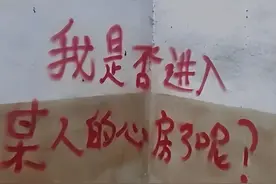 我是否进入
某人的心房了呢？